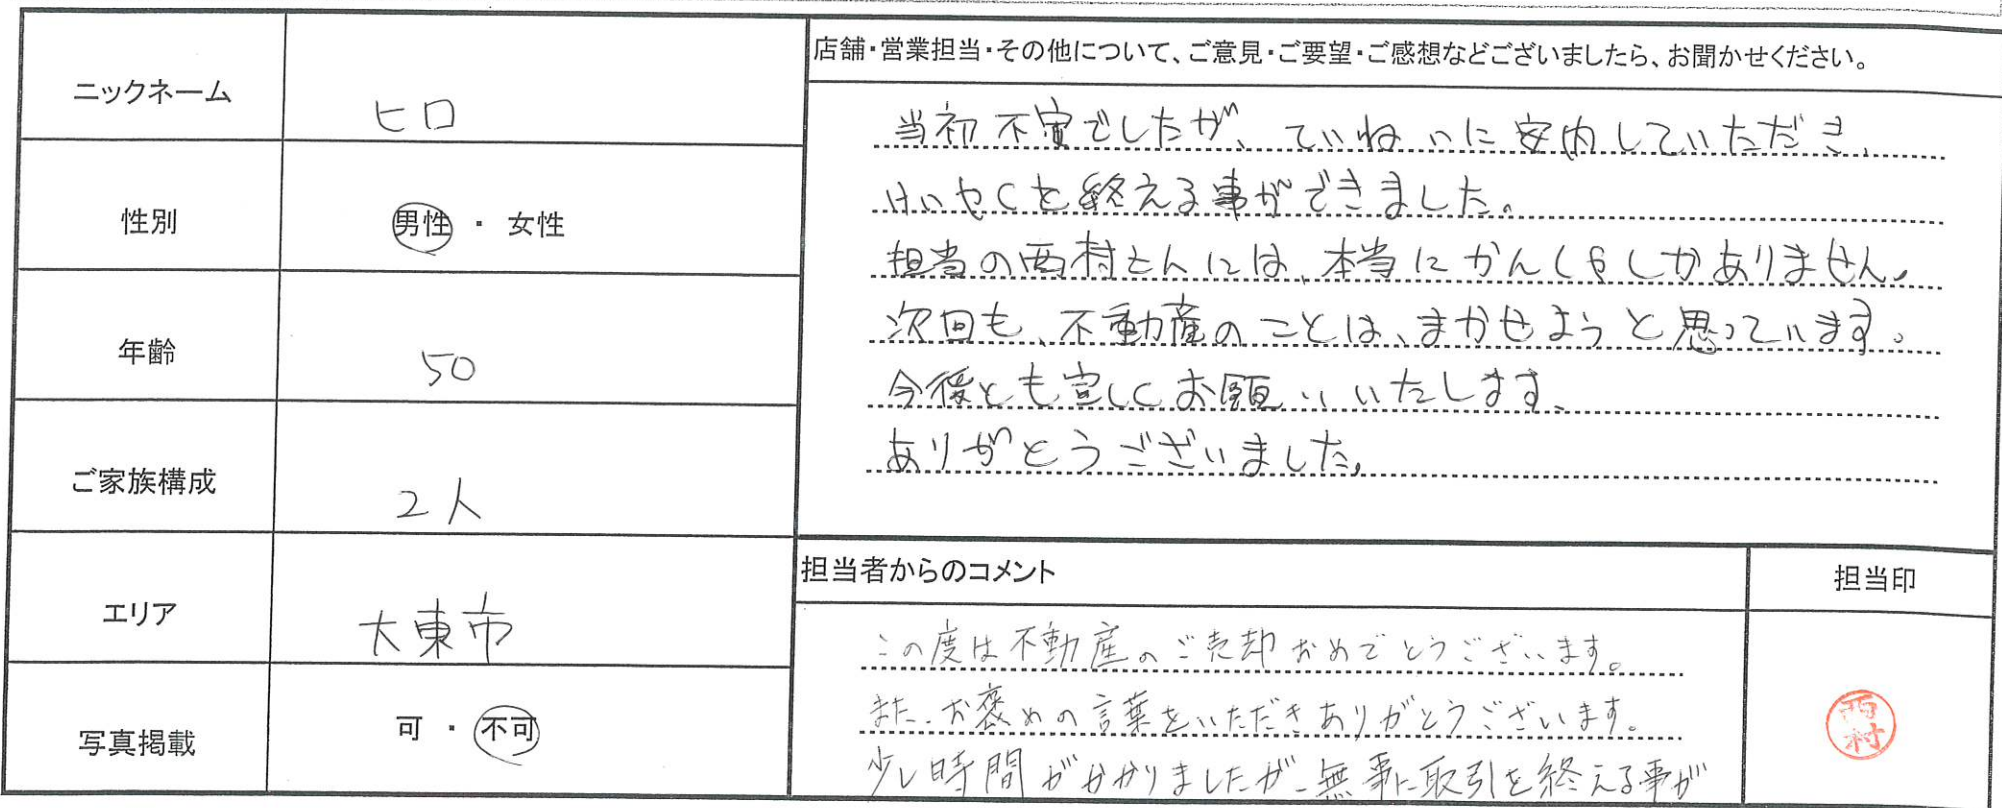 ニックネーム
ヒロ
性別
男性 ・ 女性
年齢
50
ご家族構成
2人
エリア
大東市
写真掲載
可 ・ 不可
店舗・営業担当・その他について、ご意見・ご要望・ご感想などございましたら、お聞かせください。
当初不安でしたが、ていねいに案内していただき、
けいやくを終える事ができました。
担当の西村さんには、本当にかんしゃしかありません。
次回も、不動産のことは、まかせようと思っています。
今後とも宜しくお願いいたします。
ありがとうございました。
担当者からのコメント
この度は不動産のご売却おめでとうございます。
また、お褒めの言葉をいただきありがとうございます。
少し時間がかかりましたが、無事に取引を終える事が
担当印
西村